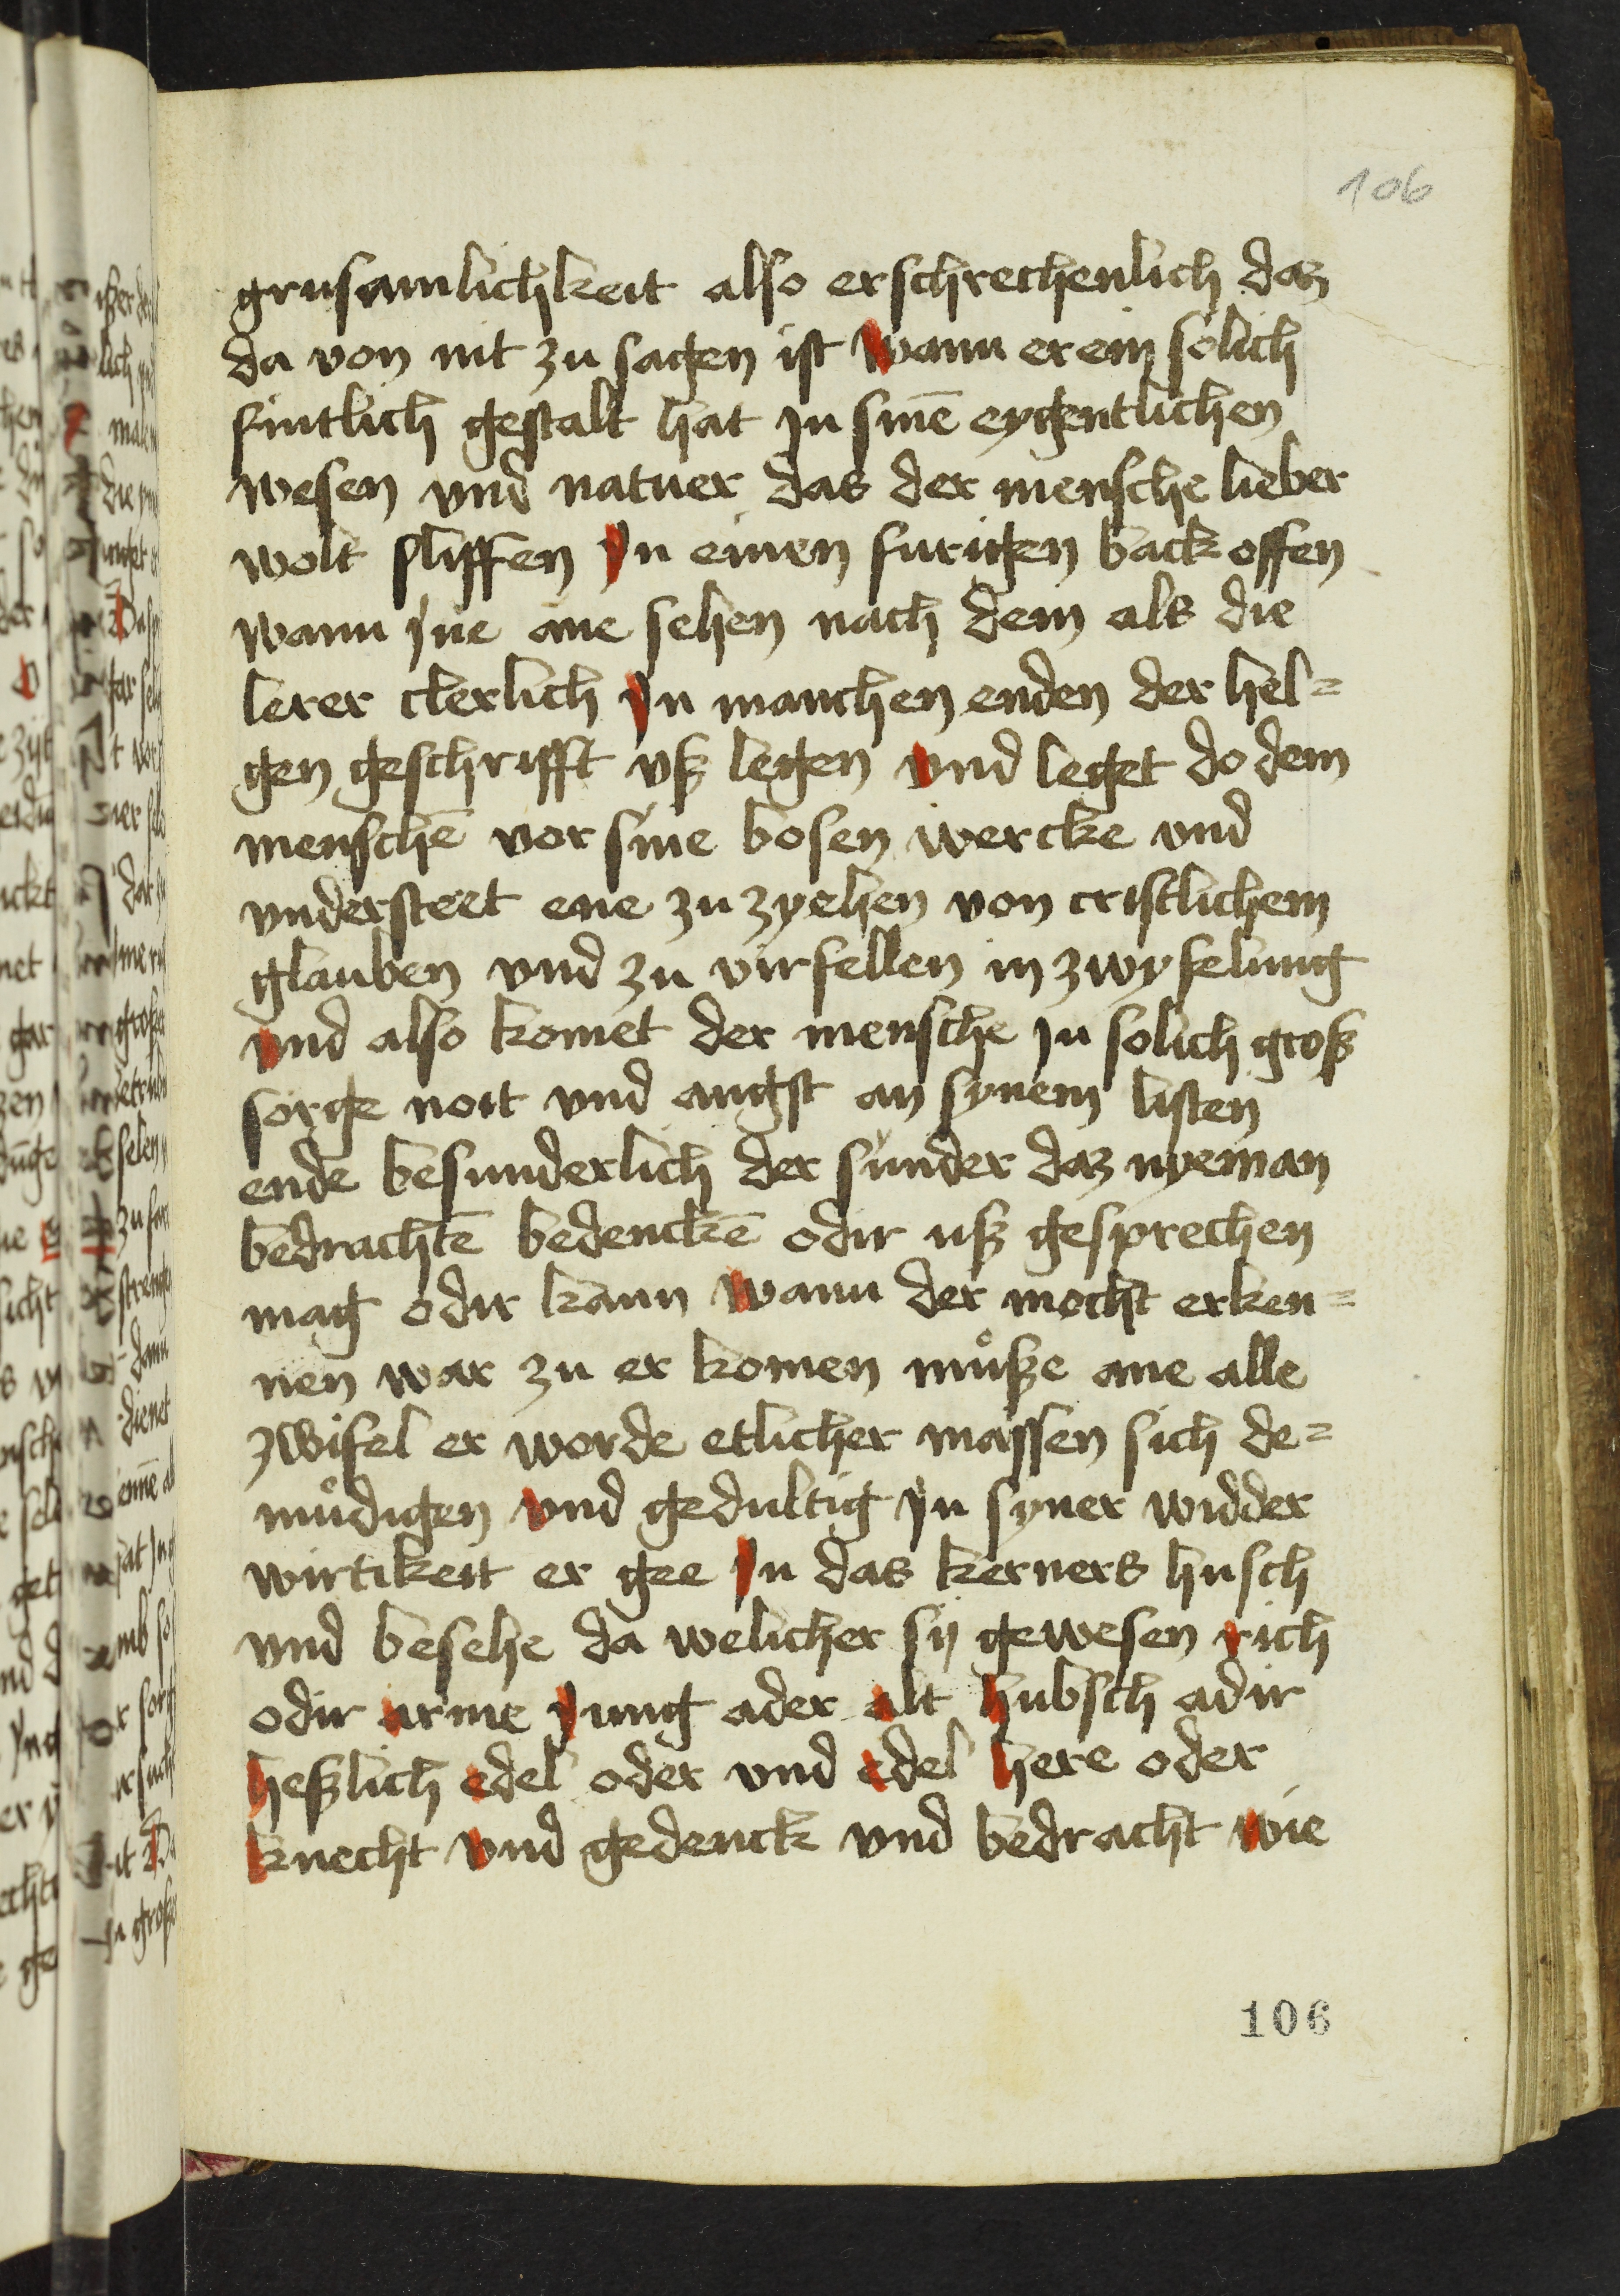 106
grusamlichkeit also erschrechenlich daz
da von nit zu sagen ist wann er ein solich
fintlich gestalt hat jn sinē eygentlichen
wesen vnd natuer das der mensche lieber
wolt sliffen Jn einen furigen back offen
wann jne ane sehen nach dem als die
lerer clerlich Jn manchen enden der hel=
gen geschrifft vß legen vnd leget do dem
menschē vor sine bosen wercke vnd
vndersteet ene zu zyehen von cristlichem
glauben vnd zu virfellen in zwyfelung
vnd also komet der mensche jn solich groß
sorge noit vnd angst an synem listen
ende besunderlich der sunder daz nyeman
bedrachtē bedenckē odir uß gesprechen
mag odir kann wann der mocht erken=
nen war zu er komen muͦße ane alle
zwifel er worde etlicher massen sich de=
muͦdigen vnd gedultig jn syner widder
wirtikeit er gee Jn das kerners husch
vnd besehe da welicher sij gewesen rich
odir arme jung ader alt hubsch adir
heßlich edel oder vnd edel here oder
knecht vnd gedenck vnd bedracht wie
106